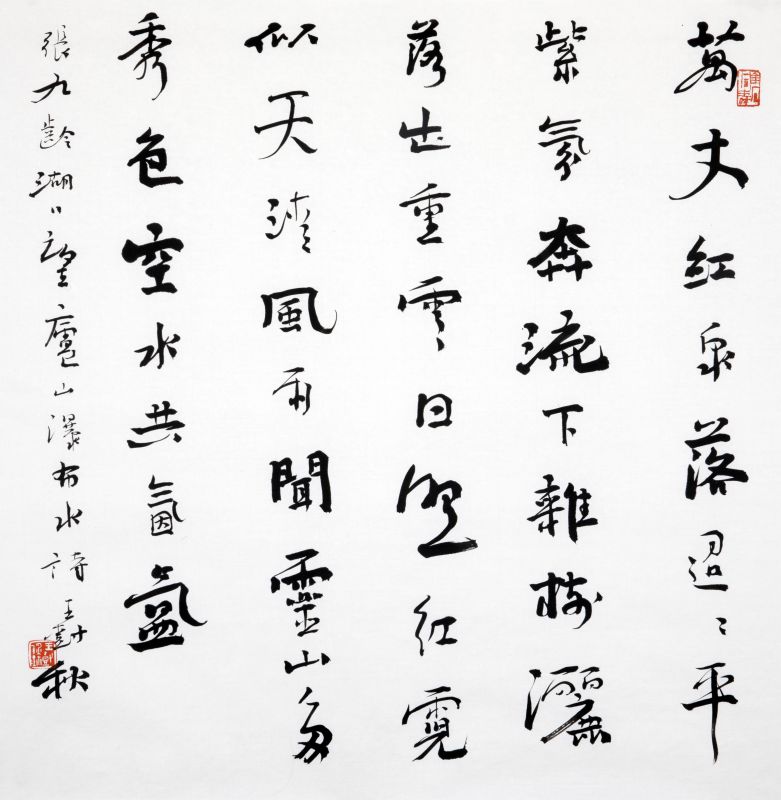 萬丈紅泉落迢〻平
紫氛奔流下雜樹灑
落出重雲日照紅霓
似天清風雨聞靈山多
秀色空水共氤氳
張九齡湖口望廬山瀑布水詩 王秋